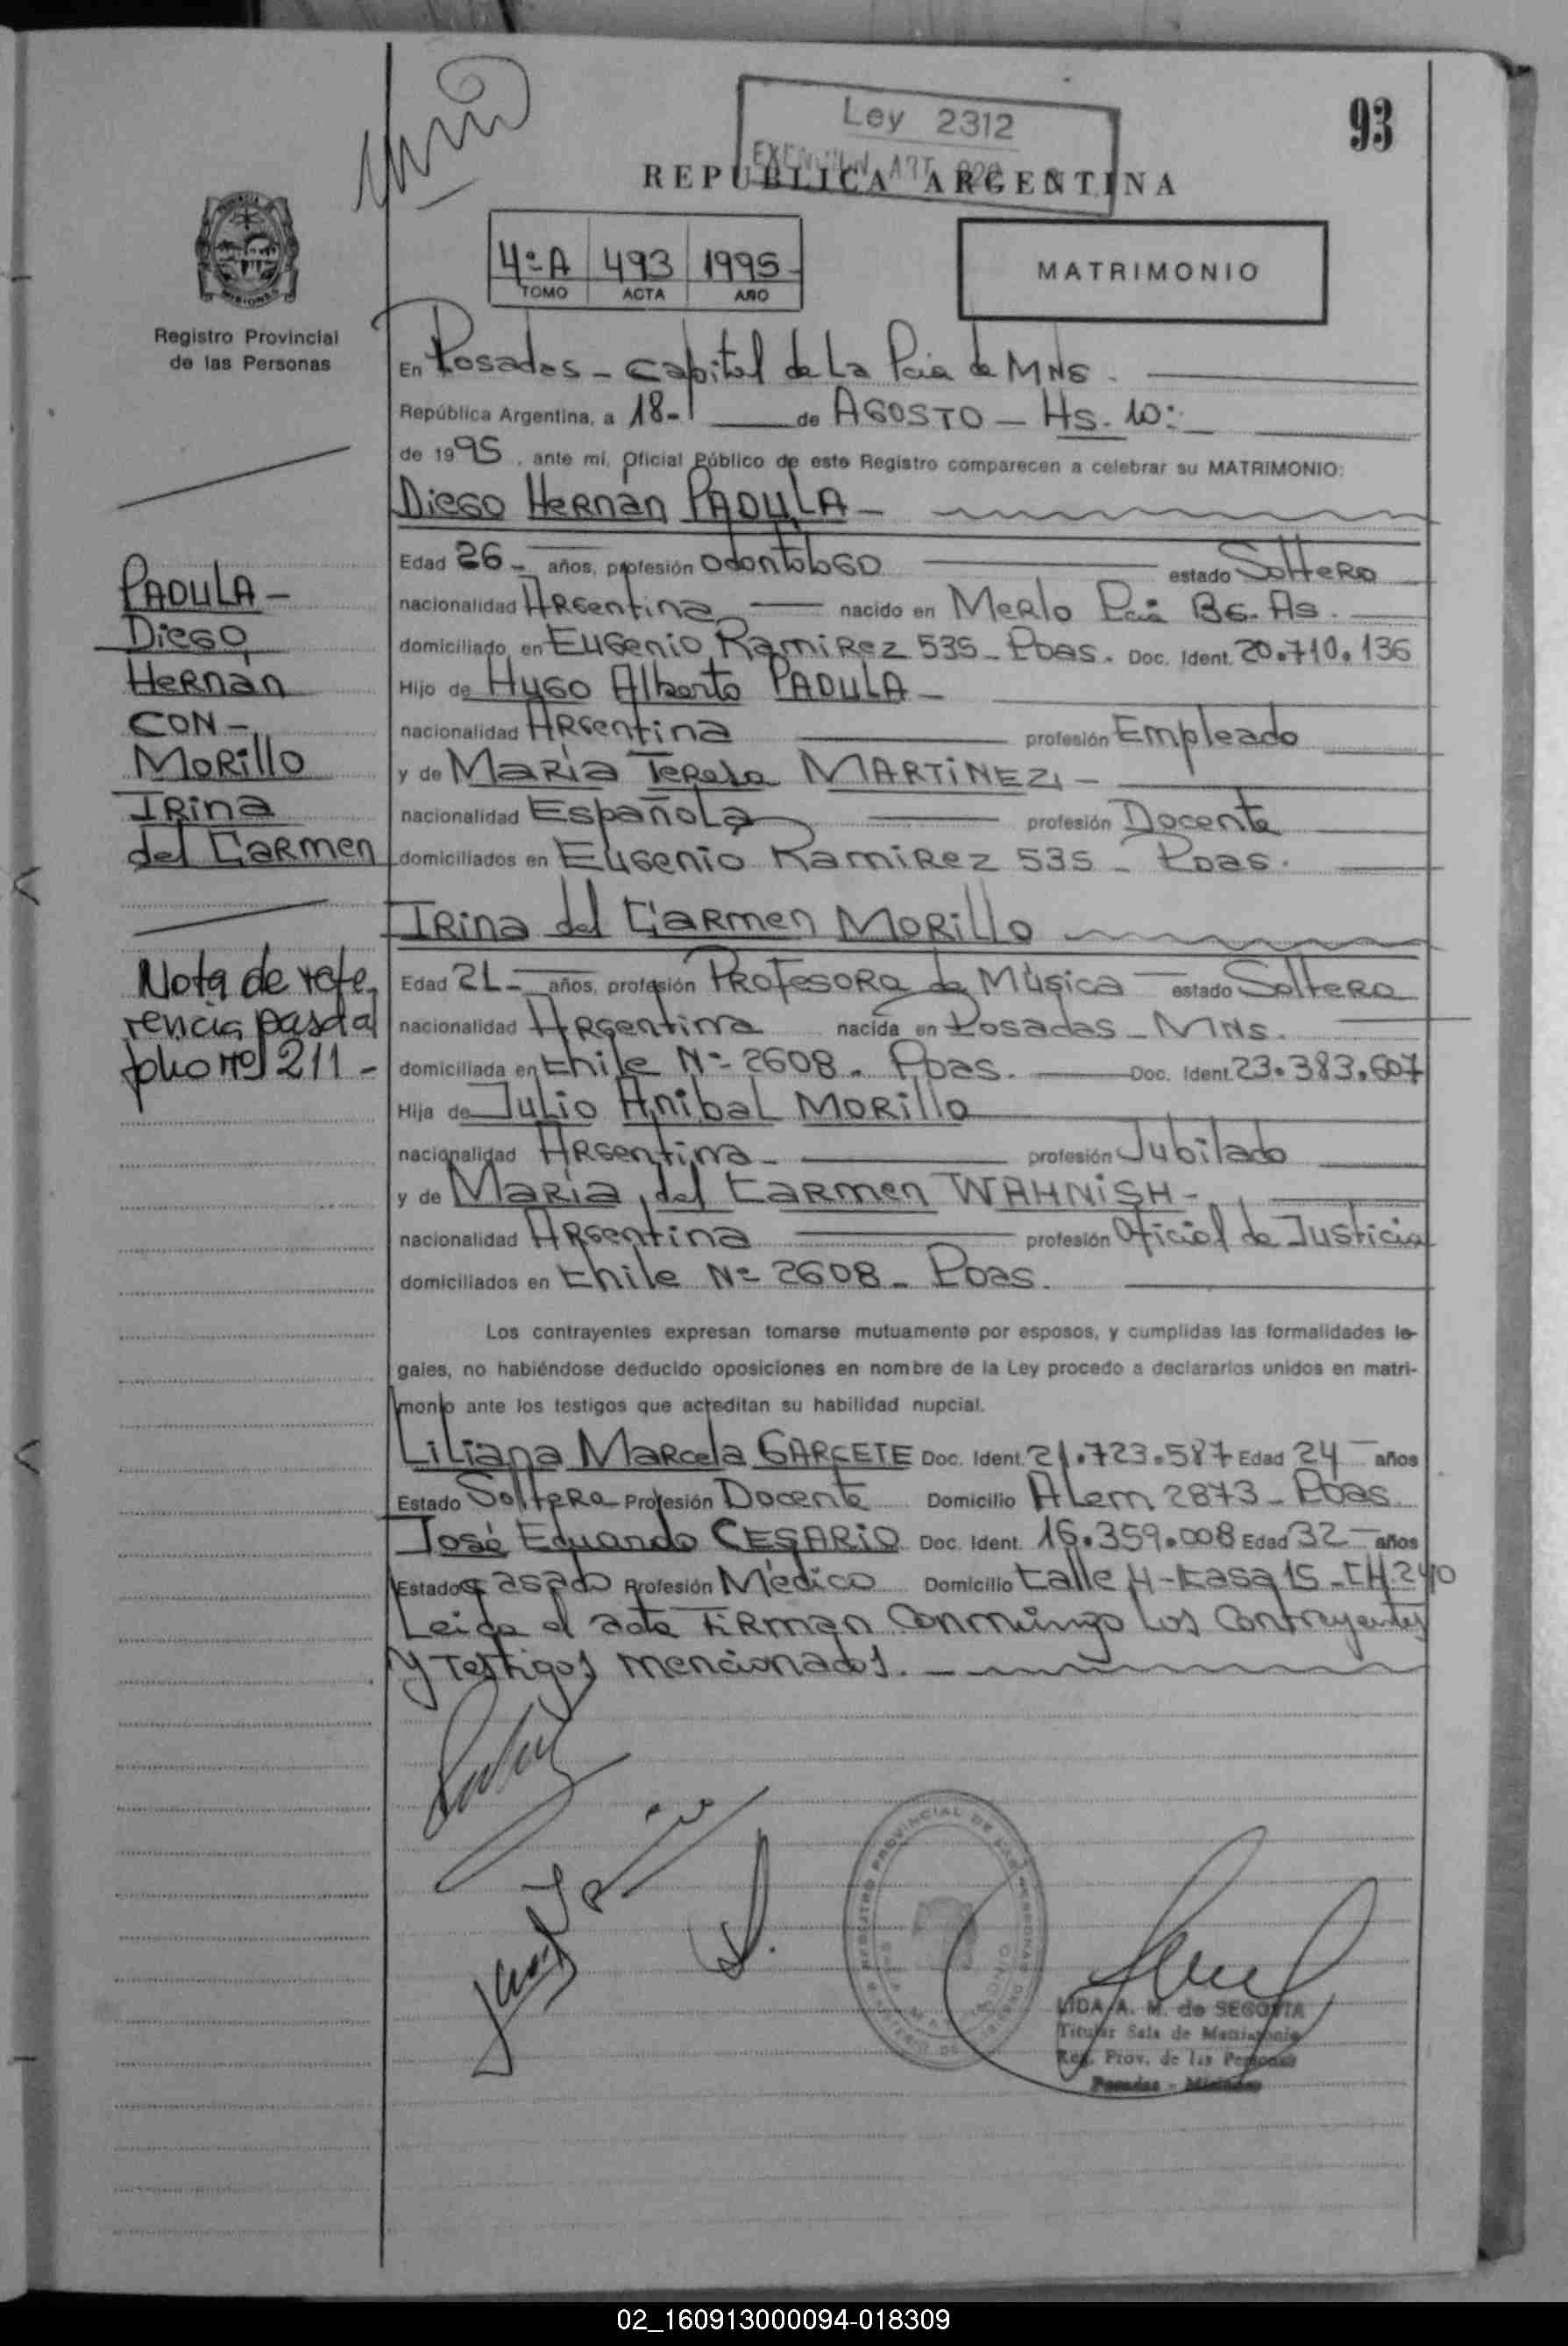 93
Ley 2312
EXENCION ART.
REPUBLICA ARGENTINA
4º A 493 1995
TOMO ACTA AÑO
MATRIMONIO
Registro Provincial
de las Personas
En Posadas - Capital de La Pcia de MNS.
República Argentina, a 18- de AGOSTO - Hs. 10:
de 1995, ante mí, Oficial Público de este Registro comparecen a celebrar su MATRIMONIO:
Diego Hernán PADULA -
Edad 26- años, profesión Odontologo estado Soltero
nacionalidad Argentina nacido en Merlo Pcia Bs. As.
domiciliado en Eugenio Ramirez 535 - Pdas. Doc. Ident. 20.710.136
Hijo de Hugo Alberto PADULA -
nacionalidad Argentina profesión Empleado
y de María Teresa MARTINEZ -
nacionalidad Española profesión Docente
domiciliados en Eugenio Ramirez 535 - Pdas.
Irina del Carmen Morillo
Edad 21- años, profesión Profesora de Música estado Soltera
nacionalidad Argentina nacida en Posadas - MNS.
domiciliada en Chile Nº 2608 - Pdas. Doc. Ident. 23.383.607
Hija de Julio Anibal Morillo
nacionalidad Argentina - profesión Jubilado
y de María del Carmen WAHNISH -
nacionalidad Argentina profesión Oficial de Justicia
domiciliados en Chile Nº 2608 - Pdas.
Los contrayentes expresan tomarse mutuamente por esposos, y cumplidas las formalidades le-
gales, no habiéndose deducido oposiciones en nombre de la Ley procedo a declararlos unidos en matri-
monio ante los testigos que acreditan su habilidad nupcial.
Liliana Marcela GARCETE Doc. Ident. 21.723.587 Edad 24 años
Estado Soltera Profesión Docente Domicilio Alem 2873 - Pdas.
José Eduardo CESARIO Doc. Ident. 16.359.008 Edad 32 años
Estado Casado Profesión Médico Domicilio Calle 4 - Casa 15 - CH 240
Leida el acta Firman Conmigo los Contrayentes
y Testigos mencionados.
PADULA -
Diego
Hernán
CON -
Morillo
Irina
del Carmen
Nota de refe
rencia pasa al
folio nº 211 -
LIDA A. M. de SEGOVIA
Titular Sala de Matrimonio
Reg. Prov. de las Personas
Posadas - Misiones
02_160913000094-018309